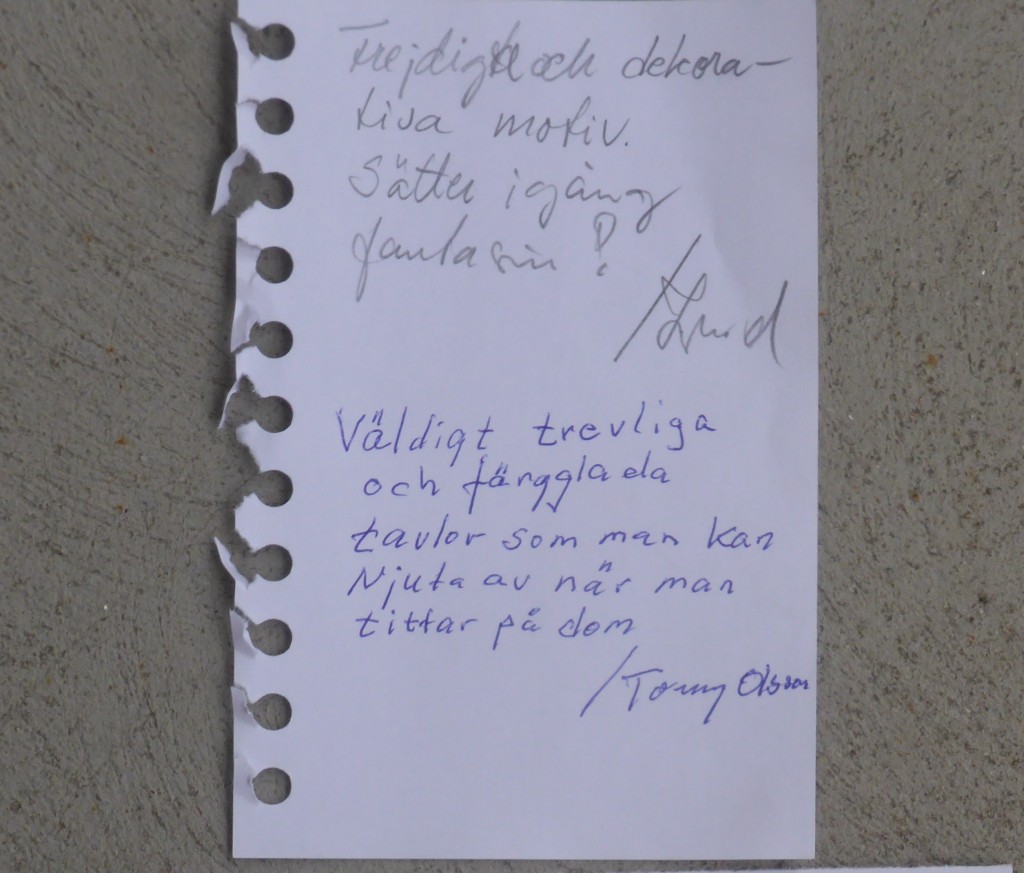 Frejdigt och dekora-
tiva motiv.
Sätter igång
fantasin!
/Lund
Väldigt trevliga
och färgglada
tavlor som man kan
Njuta av när man
tittar på dom
/Tommy Olsson